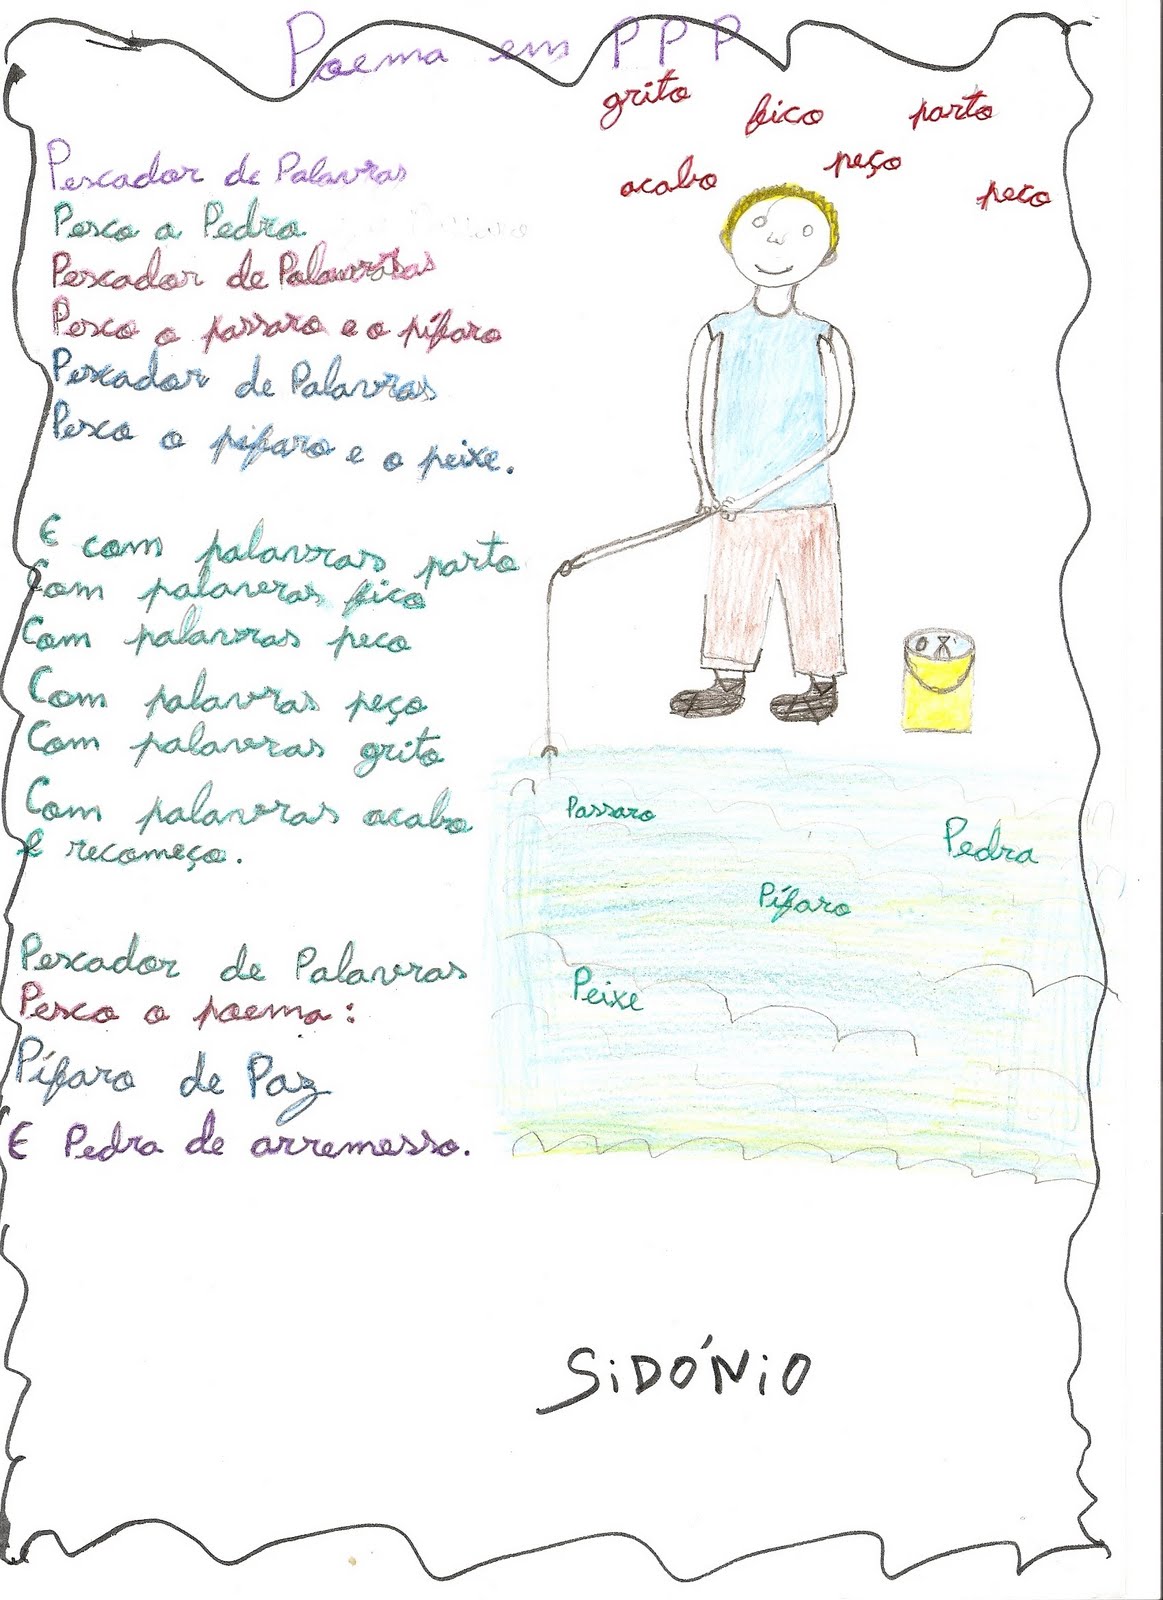 Poema em PPP
grito fico parto
acabo peço peco
Pescador de Palavras
Pesco a Pedra
Pescador de Palavras
Pesco o passaro e o pífaro
Pescador de Palavras
Pesco o pífaro e o peixe.
E com palavras parto
Com palavras fico
Com palavras peco
Com palavras peço
Com palavras grito
Com palavras acabo
E recomeço.
Pescador de Palavras
Pesco o poema:
Pífaro de Paz
E Pedra de arremesso.
Passaro
Pedra
Pífaro
Peixe
SiDÓNiO